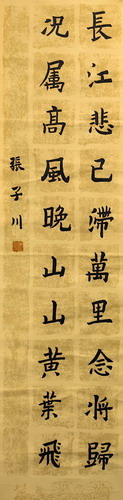 長江悲已滯萬里念將歸
况属髙風晚山山黄葉飛
張子川